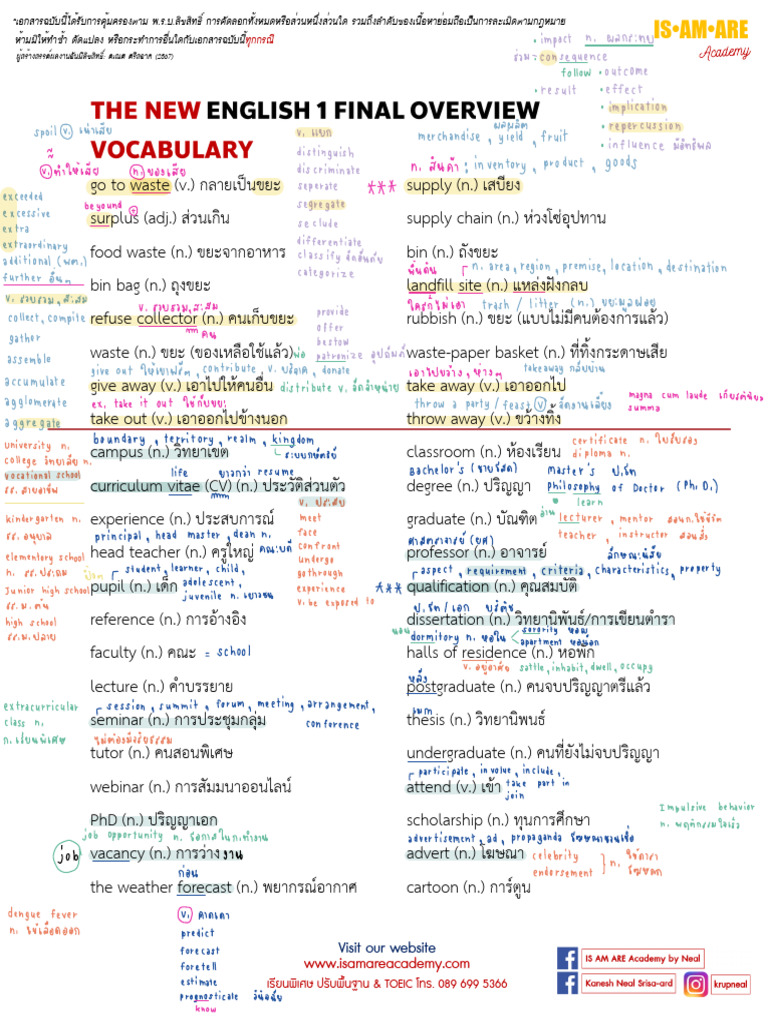 "เอกสารฉบับนี้ได้รับการคุ้มครองตาม พ.ร.บ.ลิขสิทธิ์ การคัดลอกทั้งหมดหรือส่วนหนึ่งส่วนใด รวมถึงลำดับของเนื้อหาย่อมถือเป็นการละเมิดตามกฎหมาย
ห้ามมิให้ทำซ้ำ ดัดแปลง หรือกระทำการอื่นใดกับเอกสารฉบับนี้ทุกกรณี
IS•AM•ARE
Academy
• impact n. ผลกระทบ
ร่วม : consequence
follow • outcome
• result • effect
• implication
• repercussion
• influence มีอิทธิพล
THE NEW ENGLISH 1 FINAL OVERVIEW
VOCABULARY
spoil v. เน่าเสีย
v. ทำให้เสีย n. ของเสีย
v. แยก
distinguish
discriminate
seperate
segregate
seclude
differentiate
classify จัดอันดับ
categorize
merchandise, yield, fruit
ผลผลิต
n. สินค้า : inventory, product, goods
go to waste (v.) กลายเป็นขยะ
supply (n.) เสบียง
beyound
surplus (adj.) ส่วนเกิน
supply chain (n.) ห่วงโซ่อุปทาน
exceeded
excessive
extra
extraordinary
additional (พต.)
further อื่นๆ
food waste (n.) ขยะจากอาหาร
bin (n.) ถังขยะ
พื้นดิน n. area, region, premise, location, destination
bin bag (n.) ถุงขยะ
landfill site (n.) แหล่งฝังกลบ
v. รวบรวม, สะสม
collect, compile
gather
assemble
accumulate
agglomerate
aggregate
v. รวบรวม, สะสม
refuse collector (n.) คนเก็บขยะ
คน
trash / litter (n.) ขยะมูลฝอย
rubbish (n.) ขยะ (แบบไม่มีคนต้องการแล้ว)
provide
offer
bestow
patronize อุปถัมภ์
waste (n.) ขยะ (ของเหลือใช้แล้ว)
waste-paper basket (n.) ที่ทิ้งกระดาษเสีย
give out ให้เขาฟรีๆ, contribute v. บริจาค, donate
takeaway กลับบ้าน
give away (v.) เอาไปให้คนอื่น
distribute v. จัดจำหน่าย
take away (v.) เอาออกไป
ex. take it out
throw a party / feast v. จัดงานเลี้ยง
magna cum laude เกียรตินิยม
summa
take out (v.) เอาออกไปข้างนอก
throw away (v.) ขว้างทิ้ง
boundary, territory, realm, kingdom
ระบบกษัตริย์
university n.
college วิทยาลัย n.
vocational school
รร. สายอาชีพ
campus (n.) วิทยาเขต
classroom (n.) ห้องเรียน
certificate n. ใบรับรอง
diploma n.
life ยาวกว่า resume
curriculum vitae (CV) (n.) ประวัติส่วนตัว
Bachelor's (ป.ตรี) Master's ป.โท
degree (n.) ปริญญา
philosophy of Doctor (Ph.D.)
learn
v. ประสบ
meet
face
confront
undergo
gothrough
experience
v. be exposed to
kindergarten n.
รร. อนุบาล
elementary school
n. รร. ประถม
Junior high school
รร. ม.ต้น
high school
รร. ม.ปลาย
experience (n.) ประสบการณ์
graduate (n.) บัณฑิต
lecturer, mentor
teacher, instructor
principal, head master, dean n. คณบดี
head teacher (n.) ครูใหญ่
professor (n.) อาจารย์
student, learner, child,
adolescent,
juvenile n. เยาวชน
aspect, requirement, criteria, characteristics, property
pupil (n.) เด็ก
qualification (n.) คุณสมบัติ
reference (n.) การอ้างอิง
dissertation (n.) วิทยานิพันธ์/การเขียนตำรา
นอน dormitory n. หอใน
sorority
apartment หอนอก
faculty (n.) คณะ = school
halls of residence (n.) หอพัก
v. อยู่อาศัย sattle, inhabit, dwell, occupy
หลัง
lecture (n.) คำบรรยาย
postgraduate (n.) คนจบปริญญาตรีแล้ว
extracurricular
class n.
n. เรียนพิเศษ
session, summit, forum, meeting, arrangement,
conference
seminar (n.) การประชุมกลุ่ม
thesis (n.) วิทยานิพนธ์
tutor (n.) คนสอนพิเศษ
undergraduate (n.) คนที่ยังไม่จบปริญญา
participate, involve, include,
take part in
join
webinar (n.) การสัมมนาออนไลน์
attend (v.) เข้า
PhD (n.) ปริญญาเอก
scholarship (n.) ทุนการศึกษา
Impulsive behavior
n. พฤติกรรมใจเร็ว
job opportunity n. โอกาสในการทำงาน
advertisement, ad, propaganda โฆษณาชวนเชื่อ
job vacancy (n.) การว่างงาน
advert (n.) โฆษณา
celebrity
endorsement
n. ใช้ดารา
โฆษณา
ก่อน
the weather forecast (n.) พยากรณ์อากาศ
cartoon (n.) การ์ตูน
dengue fever
n. ไข้เลือดออก
v. คาดเดา
predict
forecast
foretell
estimate
prognosticate วินิจฉัย
know
Visit our website
www.isamareacademy.com
เรียนพิเศษ ปรับพื้นฐาน & TOEIC โทร. 089 699 5366
IS AM ARE Academy by Neal
Kanesh Neal Srisa-ard
krupneal